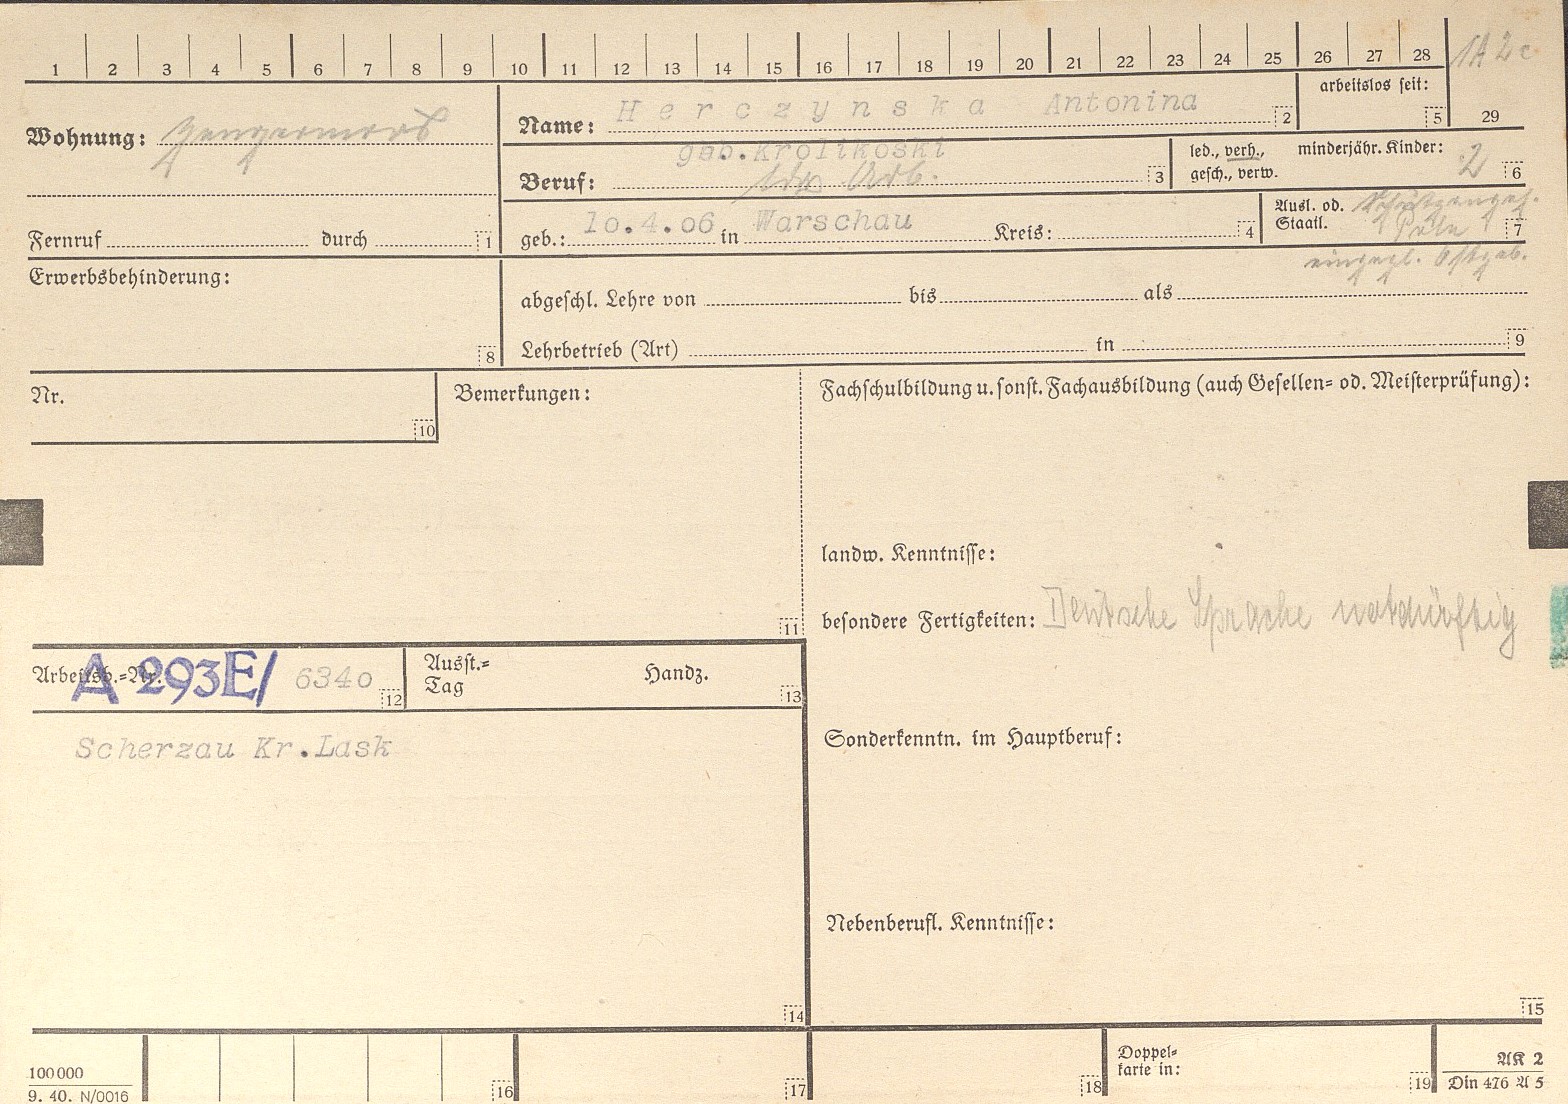 1 2 3 4 5 6 7 8 9 10 11 12 13 14 15 16 17 18 19 20 21 22 23 24 25 26 27 28 1A 2c
arbeitslos seit:
5 29
Wohnung:
Name: Herczynska Antonina 2
geb. Krolikoski
Beruf: Arb. 3
led., verh., minderjähr. Kinder: 2 6
gesch., verw.
Fernruf durch 1
geb.: 10.4.06 in Warschau Kreis: 4
Ausl. od. Schutzangeh.
Staatl. Pole 7
eingegl. Ostgeb.
Erwerbsbehinderung:
8
abgeschl. Lehre von bis als
Lehrbetrieb (Art) in 9
Nr.
10
Bemerkungen:
11
Fachschulbildung u. sonst. Fachausbildung (auch Gesellen= od. Meisterprüfung):
landw. Kenntnisse:
besondere Fertigkeiten: Deutsche Sprache notdürftig
Arbeitsb.=Nr. A 293E/ 6340 12
Ausst.= Handz.
Tag 13
Scherzau Kr.Lask
14
Sonderkenntn. im Hauptberuf:
Nebenberufl. Kenntnisse:
15
100000
9. 40. N/0016
16 17 18
Doppel=
karte in:
19
AK 2
Din 476 A 5